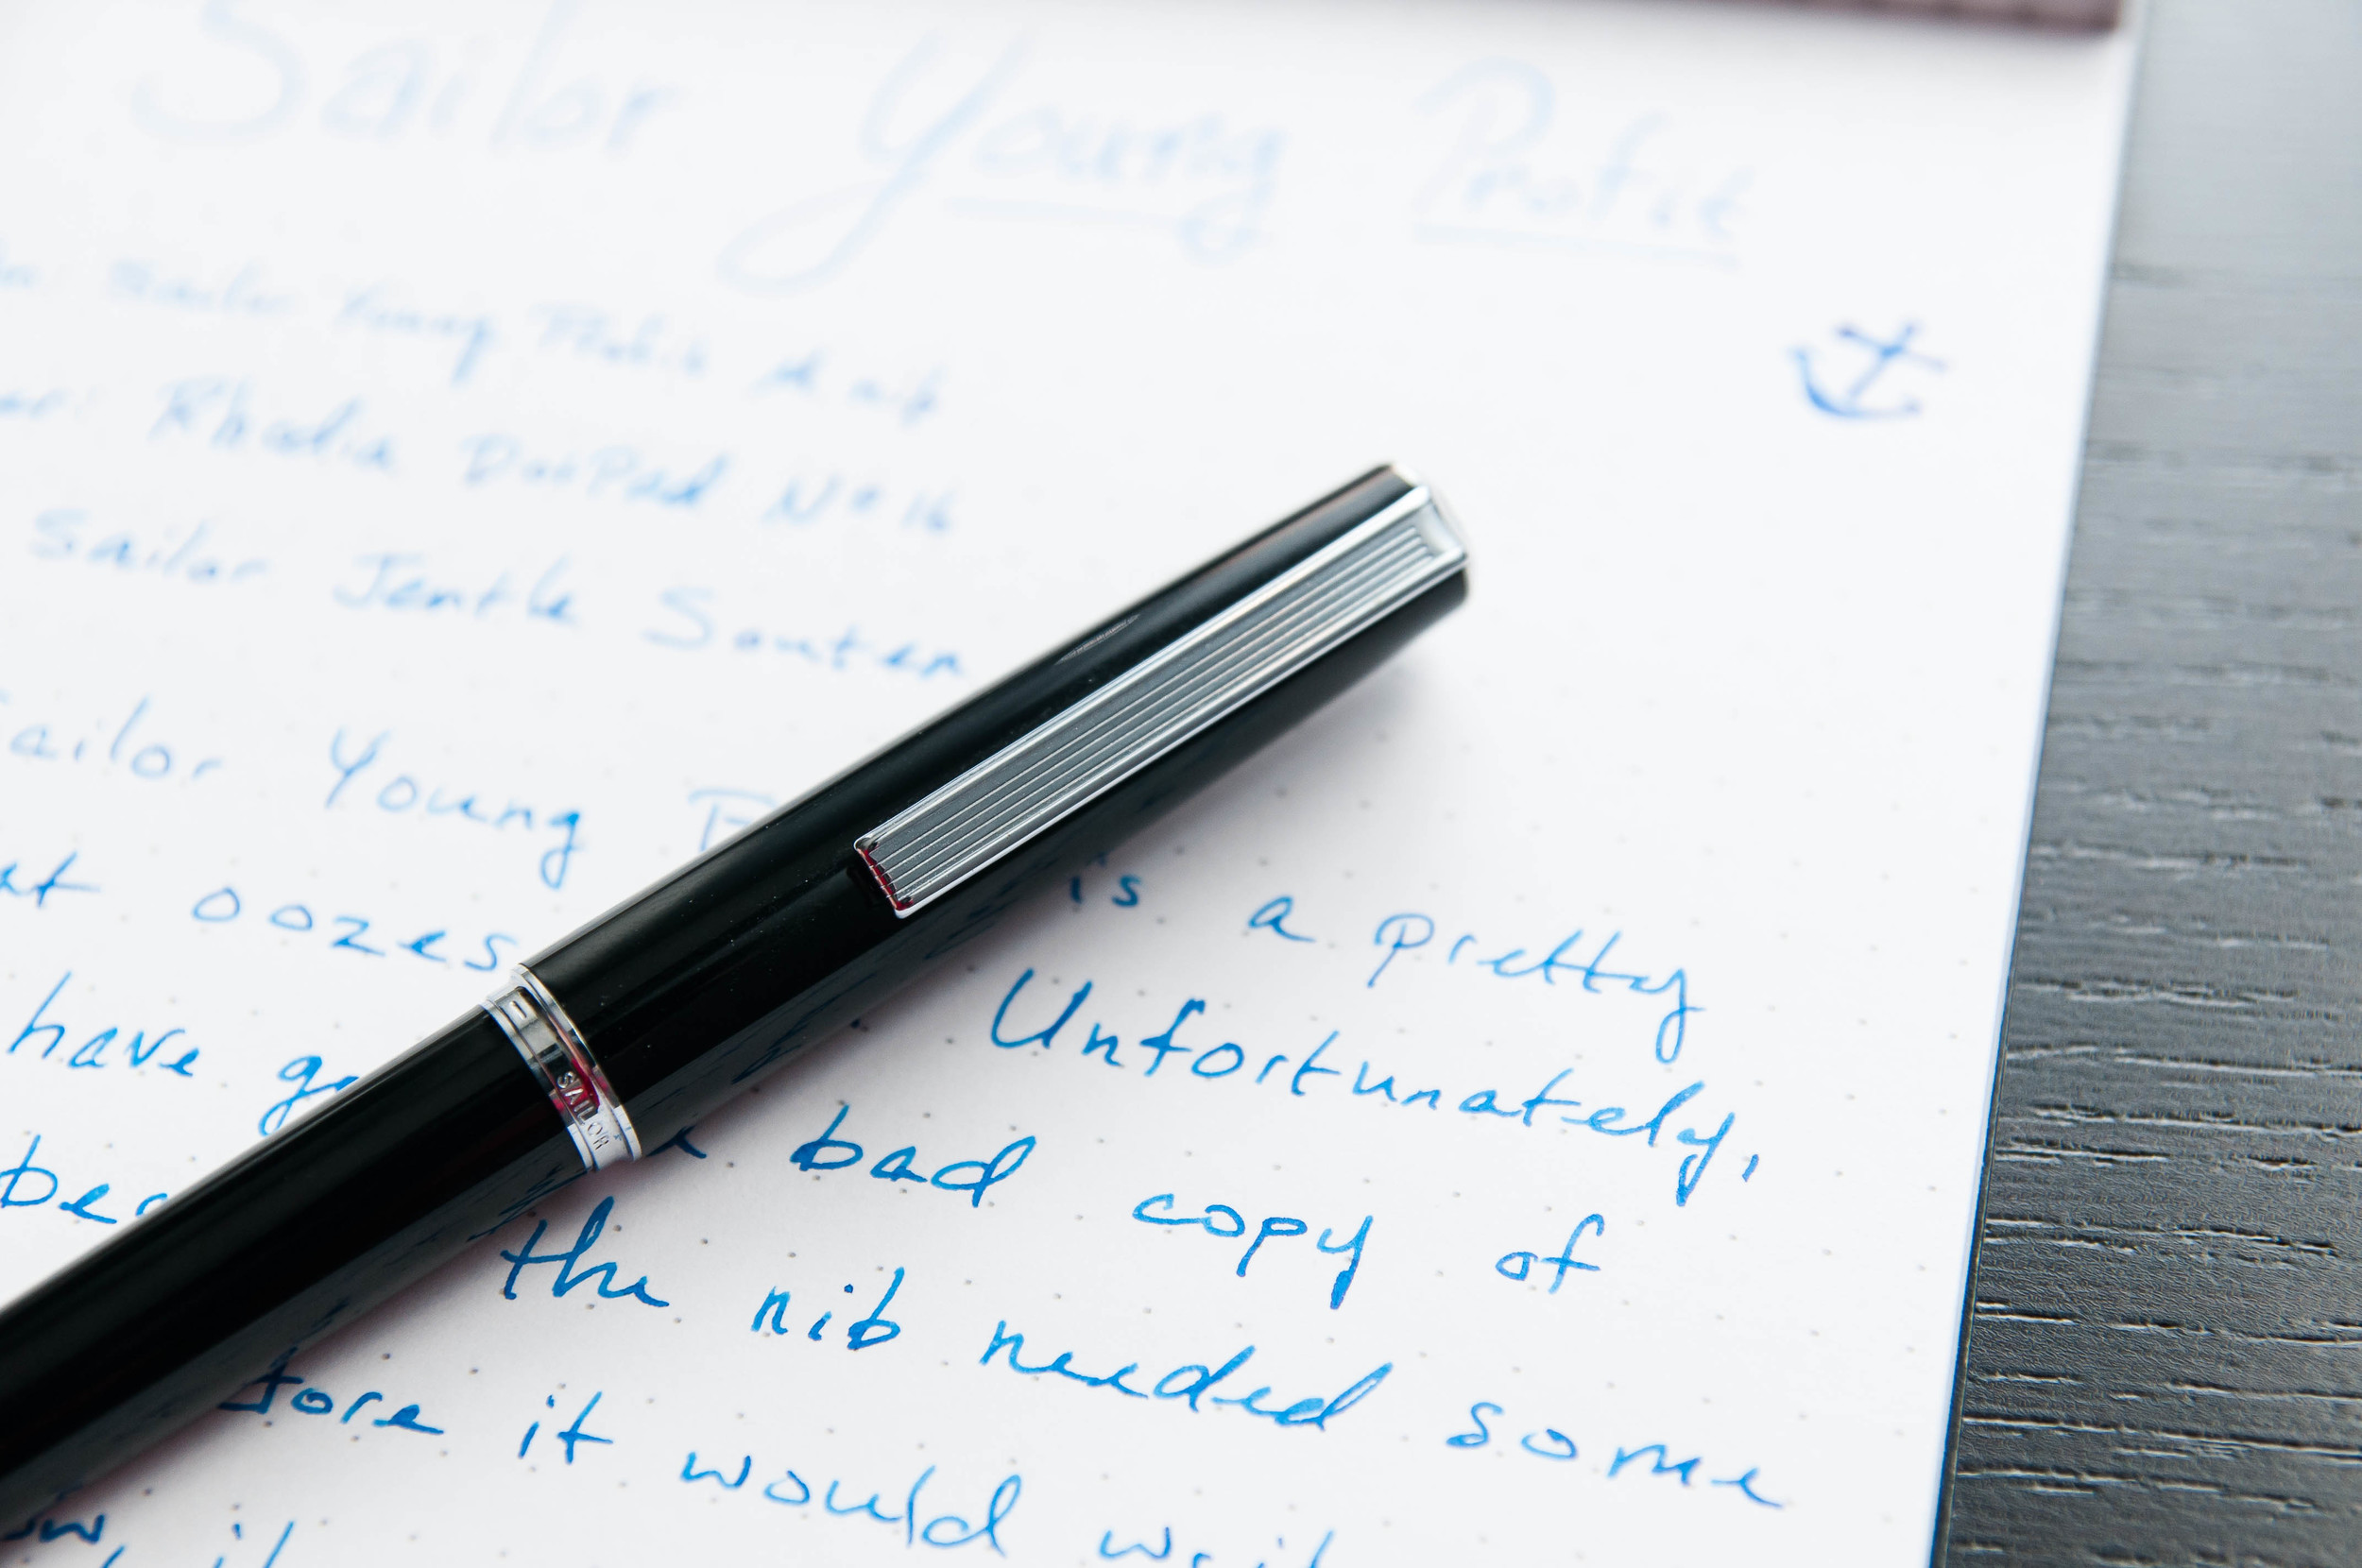 Sailor Young Profit
Sailor Young Profit nib
Rhodia DotPad Nº 16
Sailor Jentle Souten
Sailor Young is a pretty
oozes Unfortunately,
have bad copy of
the nib needed some
it would
it
SAILOR